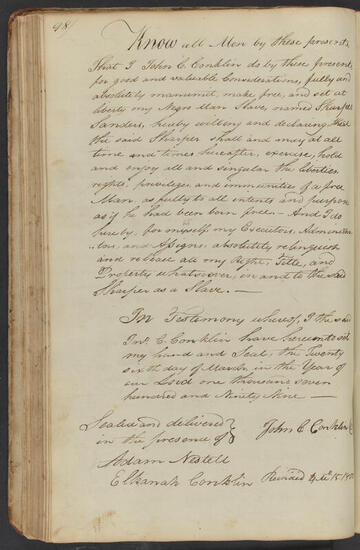 98
Know all Men by these presents
That I John C. Conklin do by these presents
for good and valuable Considerations, fully and
absolutely manumit, make free, and set at
liberty my Negro Man Slave, named Sharper
Sanders, hereby willing and declaring that
the said Sharper shall and may at all
time and times hereafter, exercise, hold
and enjoy all and singular the liberties
rights, privileges and immunities of a free
Man, as fully to all intents and purposes
as if he had been born free. — And I do
hereby, for myself my Executors, Administra
tors, and Assigns absolutely relinquish
and release all my Right, Title, and
Property whatsoever, in and to the said
Sharper as a Slave. —
In Testimony whereof, I the said
Jno. C. Conklin have hereunto set
my hand and Seal, the Twenty
sixth day of March, in the Year of
our Lord one thousand seven
hundred and Ninety Nine —
Sealed and delivered
in the presence of
John C Conklin
Adam Nestell
Elkanah Conklin
Received